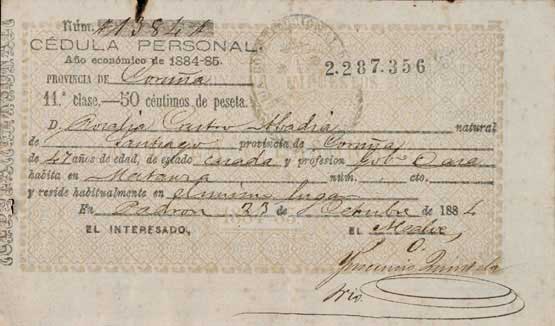 Núm. 13844
CÉDULA PERSONAL.
Año económico de 1884-85.
PROVINCIA DE Coruña
2.287.356
11.ª clase.—50 céntimos de peseta.
D. Rosalia Castro Abadia natural
de Santiago provincia de Coruña
de 47 años de edad, de estado casada y profesion
habita en Matanza núm. cto.
y reside habitualmente en el mismo lugar
En Padron 23 de Octubre de 1884
EL INTERESADO,
EL